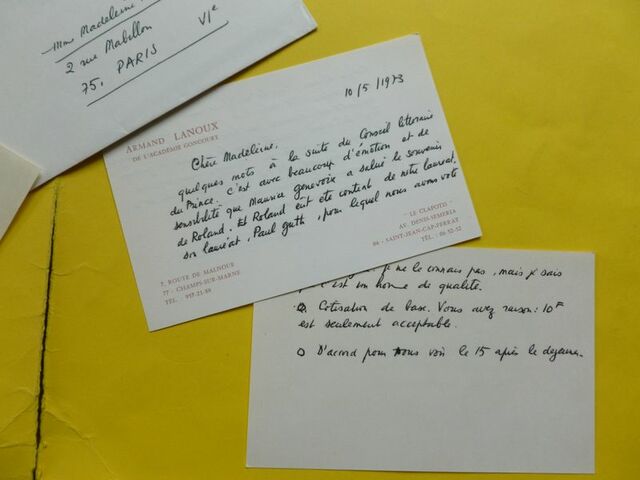 Mme Madeleine
2 rue Mabillon
VIe
75. PARIS
10/5/1973
ARMAND LANOUX
DE L'ACADÉMIE GONCOURT
Chère Madeleine,
quelques mots à la suite du Conseil littéraire
du Prince. c'est avec beaucoup d'émotion et de
sensibilité que Maurice Genevoix a salué le souvenir
de Roland. Et Roland eût été content de notre lauréat,
son lauréat, Paul Guth, pour lequel nous avons voté
"LE CLAPOTIS"
AV. DENIS-SEMERIA
06 - SAINT-JEAN-CAP-FERRAT
TÉL. : 06 52-52
7, ROUTE DE MALNOUE
77 - CHAMPS-SUR-MARNE
TÉL. : 957-21-88
je ne le connais pas, mais je sais
c'est un homme de qualité.
Cotisation de base. Vous avez raison : 10F
est seulement acceptable.
D'accord pour nous voir le 15 après le déjeuner